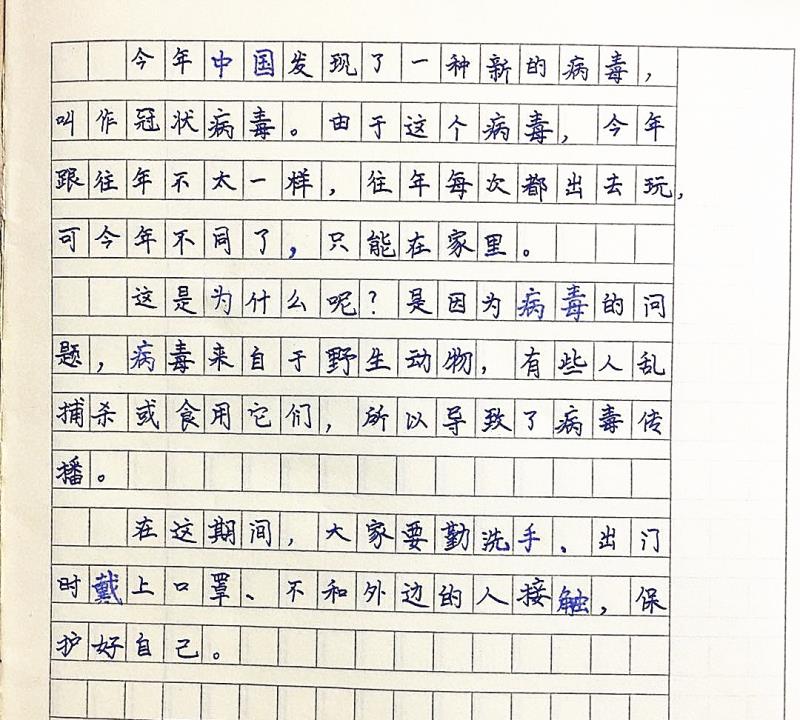 今年中国发现了一种新的病毒，
叫作冠状病毒。由于这个病毒，今年
跟往年不太一样，往年每次都出去玩，
可今年不同了，只能在家里。
这是为什么呢？是因为病毒的问
题，病毒来自于野生动物，有些人乱
捕杀或食用它们，所以导致了病毒传
播。
在这期间，大家要勤洗手、出门
时戴上口罩、不和外边的人接触，保
护好自己。